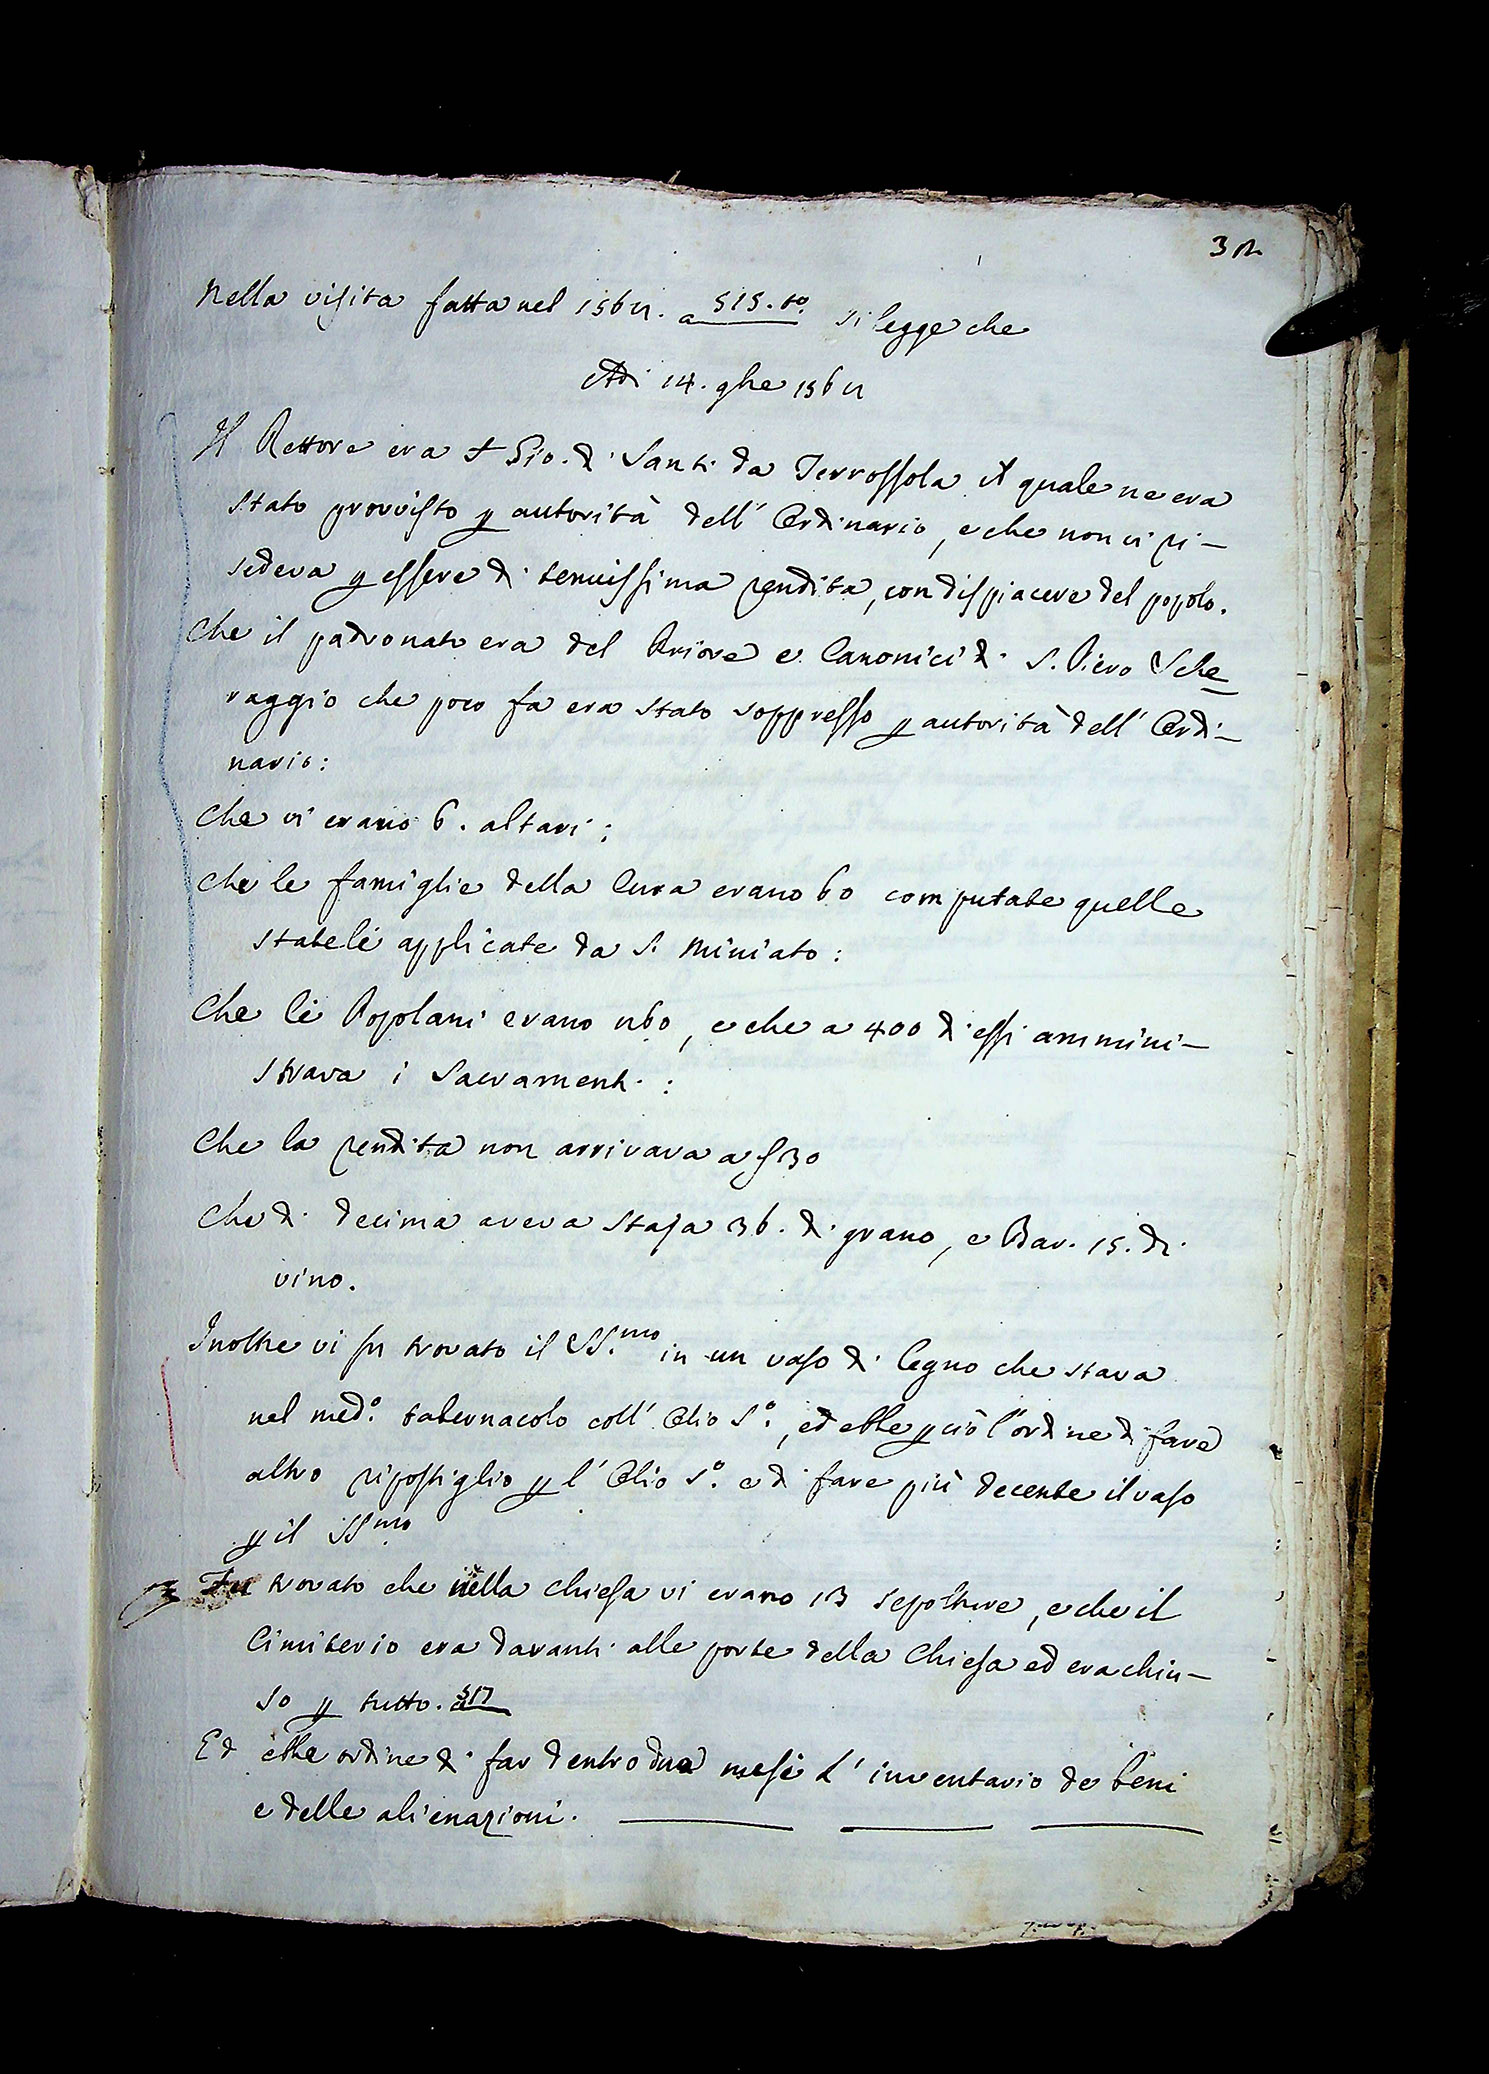 32
Nella visita fatta nel 1562. a 515. to. si legge che
Adi 14. 9bre 1562
Il Rettore era + Gio. di Santi da Terrossola il quale ne era
stato provvisto p autorità dell' Ordinario, e che non vi ri-
sedeva p essere di tenuissima rendita, con dispiacere del popolo.
Che il padronato era del Priore e Canonici di S. Piero Sche-
raggio che poco fa era stato soppresso p autorità dell' Ordi-
nario:
Che vi erano 6. altari:
Che le famiglie della Cura erano 60 computate quelle
stateli applicate da S. Miniato:
Che li Popolani erano 260, e che a 400 di essi ammini-
strava i Sacramenti:
Che la rendita non arrivava a f 30
Che di decima aveva Staja 36. di grano, e Bar. 15. di
vino.
Inoltre vi fu trovato il SS.mo in un vaso di legno che stava
nel med.o tabernacolo coll' Olio S.o, ed ebbe p ciò l'ordine di fare
altro ripostiglio p l' Olio S.o e di fare più decente il vaso
p il SS.mo
Fu trovato che nella Chiesa vi erano 13 sepolture, e che il
Cimiterio era davanti alle porte della Chiesa ed era chiu-
so p tutto. a 517
Ed ebbe ordine di far dentro due mesi l' inventario de beni
e delle alienazioni.